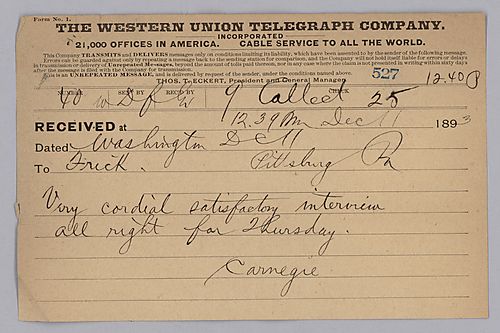 Form No. 1.
THE WESTERN UNION TELEGRAPH COMPANY.
INCORPORATED
21,000 OFFICES IN AMERICA. CABLE SERVICE TO ALL THE WORLD.
This Company TRANSMITS and DELIVERS messages only on conditions limiting its liability, which have been assented to by the sender of the following message.
Errors can be guarded against only by repeating a message back to the sending station for comparison, and the Company will not hold itself liable for errors or delays
in transmission or delivery of Unrepeated Messages, beyond the amount of tolls paid thereon, nor in any case where the claim is not presented in writing within sixty days
after the message is filed with the Company for transmission.
This is an UNREPEATED MESSAGE, and is delivered by request of the sender, under the conditions named above.
THOS. T. ECKERT, President and General Manager.
527
12.40 P
NUMBER SENT BY REC'D BY CHECK
40 9 Collect 25
12.39 Pm Dec 11 1893
RECEIVED at
Dated Washington DC 11
To Frick. Pittsburg Pa
Very cordial satisfactory interview
all right for Thursday.
Carnegie